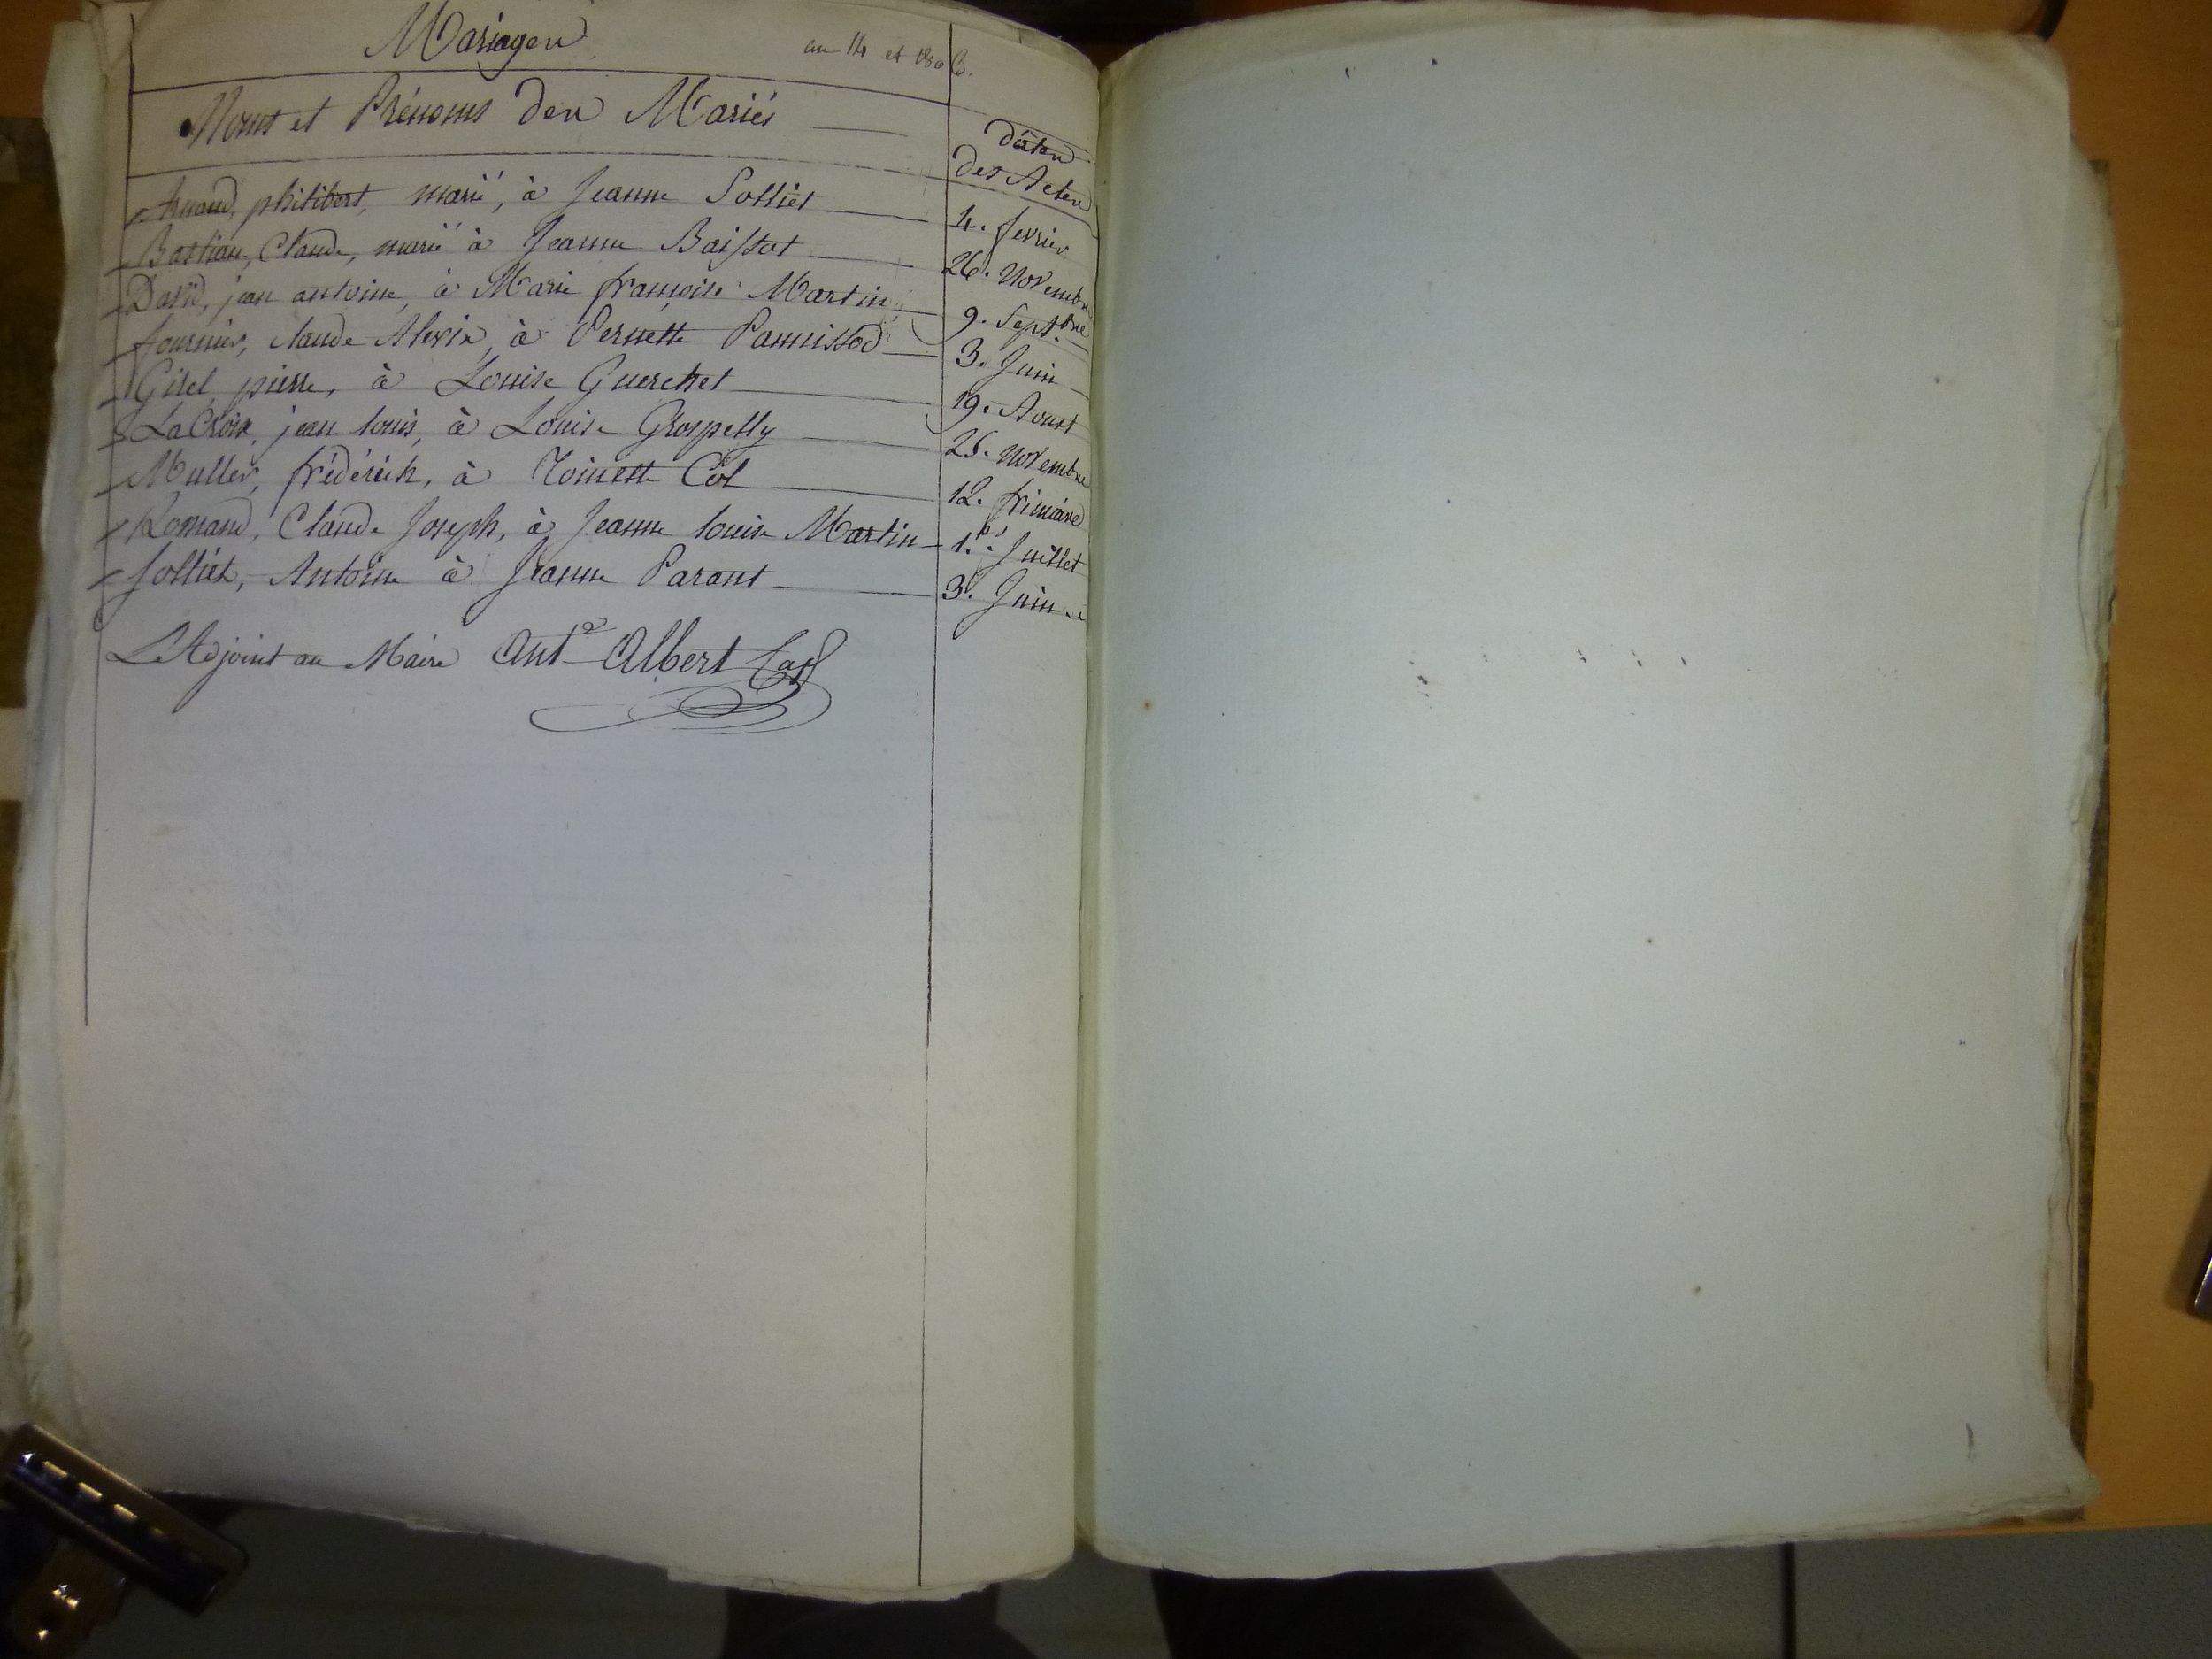 Mariages
an 14 et 1806.
Noms et Prénoms des Mariés
dates
des Actes
Arnaud, philibert, marié, à Jeanne Solliet 4. fevrier
Bastian, Claude, marié à Jeanne Baissat 26. Novembre
David, jean antoine, à Marie françoise Martin 9. Septbre
fournier, claude Alexis, à Pernette Pannissod 3. Juin
Girel, pierre, à Louise Guerchet 19. Aoust
LaCroix, jean louis, à Louise Grospelly 25. Novembre
Muller, frédérick, à Toinette Col 12. frimaire
Romand, Claude Joseph, à Jeanne louise Martin 1.er Juillet
Solliet, Antoine à Jeanne Parant 3. Juin
L'Adjoint au Maire Ante Albert